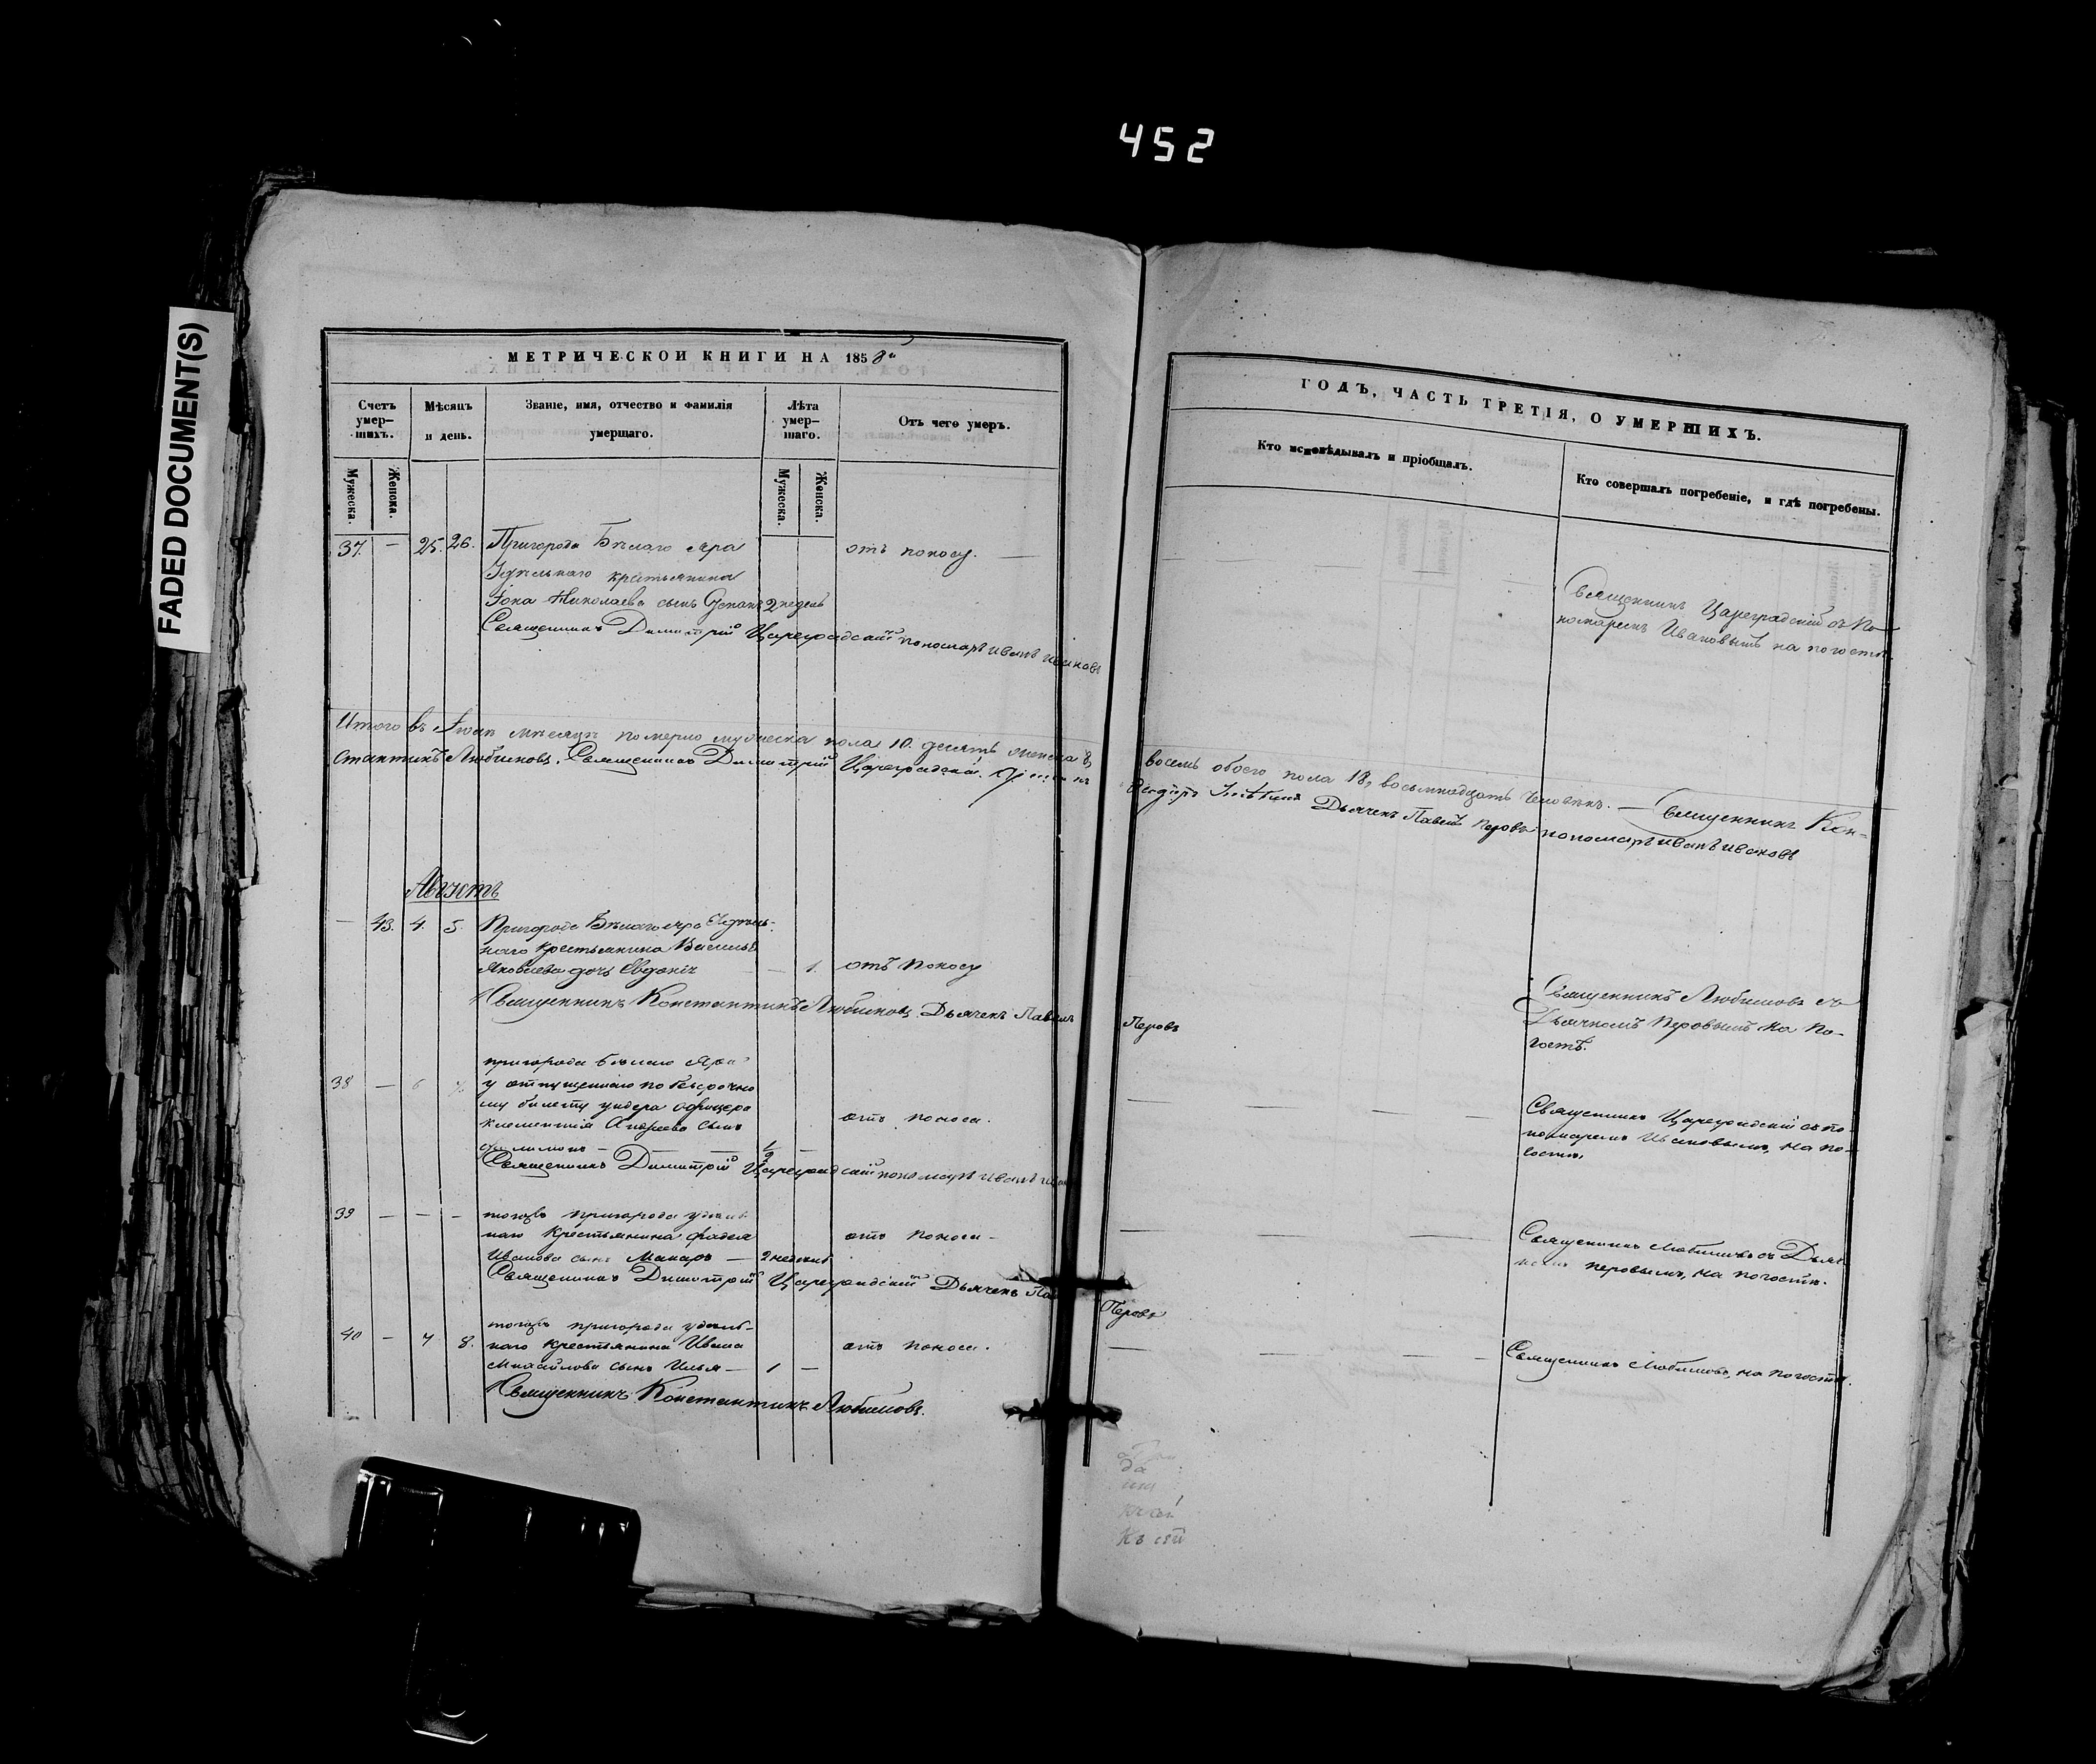 452
FADED DOCUMENT(S)
МЕТРИЧЕСКОЙ КНИГИ НА 1858й
Счетъ умер-шихъ.
Мѣсяцъ и день.
Званіе, имя, отчество и фамилія умершаго.
Лѣта умер-шаго.
Отъ чего умеръ.
Мужеска.
Женска.
Мужеска.
Женска.
37. — 25. 26. Пригорода Бѣлаго Яра
Удѣльнаго крестьянина
Іона Николаева сынъ 2 недель
отъ поносу.
Священникъ Димитрій Цареградскій пономарь Иванъ Ивановъ
Итого въ мѣсяцѣ померло мужеска пола 10. десять женска 8,
стантинъ Любимовъ. Священникъ Димитрій Цареградскій.
Августъ
— 43. 4. 5. Пригорода Бѣлаго Яра Удѣль-
наго крестьянина Василья
Яковлева дочь Евдокія — 1. отъ поносу
Священникъ Константинъ Любимовъ. Дьячекъ Павелъ
пригорода Белаго Яра
38 — 6 у отпущеннаго по безсрочно
му билету ундера офицера
Клементія Андреева сынъ отъ поноса.
Филимонъ — — 1/2 —
Священникъ Димитрій Цареградскій пономарь Иванъ
39 — — — тогожъ пригорода удель
наго крестьянина отъ поноса —
Иванова сынъ Макаръ — 2 недель
Священникъ Димитрій Цареградскій Дьячекъ
тогожъ пригорода удель-
40 — 7 8. наго крестьянина Ивана отъ поноса.
Михайлова сынъ Илья — 1 —
Священникъ Константинъ Любимовъ.
ГОДЪ, ЧАСТЬ ТРЕТІЯ, О УМЕРШИХЪ.
Кто исповѣдывалъ и пріобщалъ.
Кто совершалъ погребеніе, и гдѣ погребены.
Священникъ Цареградскій съ По-
номаремъ Ивановымъ на погостѣ.
восемь обоего пола 18, восьмнадцать человѣкъ. — Священникъ Кон-
Дьячекъ Павелъ Перовъ пономарь Иванъ Ивановъ
Священникъ Любимовъ съ
Дьячкомъ Перовымъ на По-
гостѣ.
Перовъ
Священникъ Цареградскій съ по-
номаремъ Ивановымъ, на по-
гостѣ.
Священникъ Любимовъ съ Дьяч
комъ Перовымъ, на погостѣ.
Перовъ
Священникъ Любимовъ, на погостѣ.